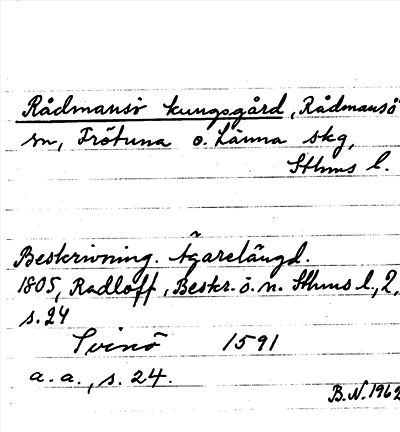 Rådmansö kungsgård, Rådmansö
sn, Frötuna o. Länna skg,
Sthms l.
Beskrivning. Ägarelängd.
1805, Radloff, Beskr. ö. n. Sthms l, 2,
s. 24
Svinö 1591
a. a., s. 24.
B.N. 1962